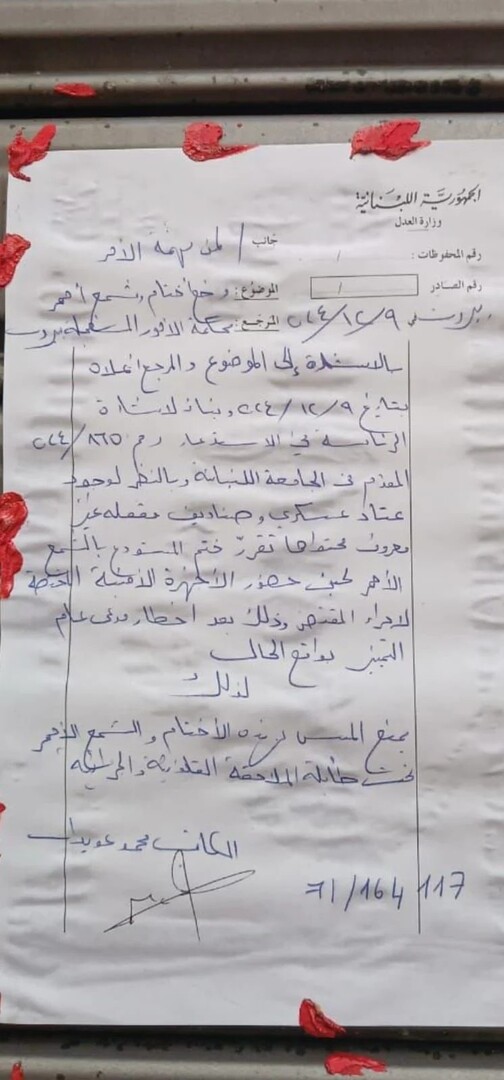 الجمهوريّة اللبنانية
وزارة العدل
رقم المحفوظات : /
جانب / لمن يهمه الأمر
رقم الصادر /
الموضوع : وضع اختام وشمع احمر
بيروت في ٩/١٢/٢٠٢٤
المرجع : محكمة الامور المستعجلة بيروت
بالاستناد إلى الموضوع والمرجع اعلاه
بتاريخ ٩/١٢/٢٠٢٤ وبناءً لاشارة
الرئاسة في الاستدعاء رقم ٨٦٥/٢٠٢٤
المقدم من الجامعة اللبنانية وبالنظر لوجود
عتاد عسكري وصناديق مقفلة غير
معروف محتواها تقرر ختم المستودع بالشمع
الأحمر لحين حضور الأجهزة الأمنية المختصة
لاجراء المقتضى وذلك بعد اخطار مدعي عام
التمييز بواقع الحال
لذلك
يمنع المس بهذه الأختام والشمع الأحمر
تحت طائلة الملاحقة القانونية والجزائية
الكاتب محمد عويدات
71/164 117